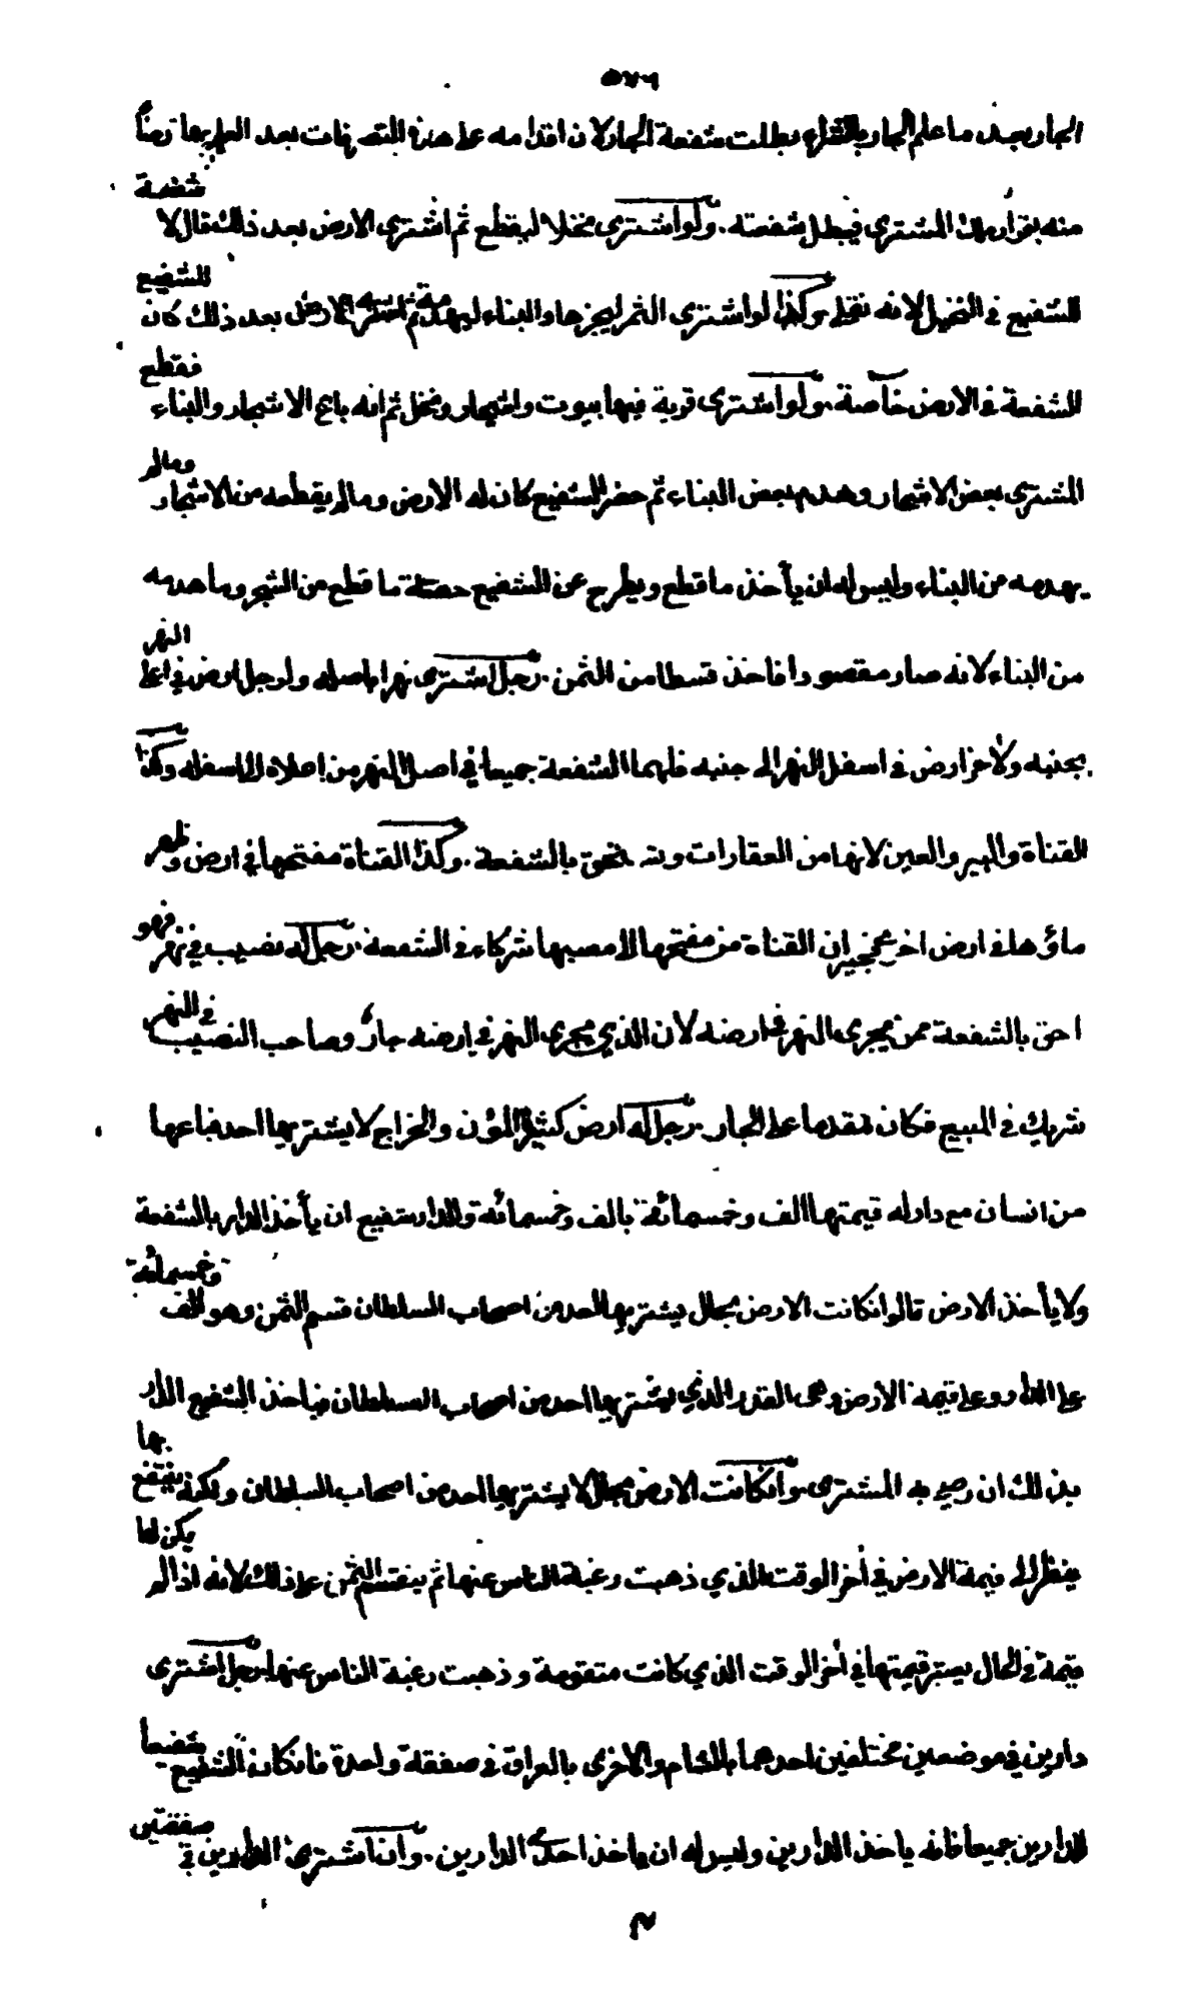 ٥٧٦
الجار بعد ما علم الجار بالشراء بطلت شفعة الجار لان اقدامه على هذه القسمة بعد العلم بها رضاً
منه بقرار ملك المشتري فيبطل شفعته . ولو اشترى نخلا ليقطع ثم اشترى الارض بعد ذلك قال لا شفعة
للشفيع في النخيل لانه نقلي وكذا لو اشترى الثمر ليجزها والبناء ليهدمه ثم اشترى الارض بعد ذلك كان للشفيع
الشفعة في الارض خاصة ولو اشترى قرية فيها بيوت واشجار ونخل ثم انه باع الاشجار والبناء فقطع
المشتري بعض الاشجار وهدم بعض البناء ثم حضر الشفيع كان له الارض وما لم يقطعه من الاشجار وما لم
يهدمه من البناء وليس له ان يأخذ ما قطع ويطرح عن الشفيع حصة ما قطع من الشجر وما هدمه
من البناء لانه صار مقصودا فاخذ قسطا من الثمن . رجل اشترى نهرا باصله ولرجل ارض في اعلى النهر
بجنبه ولأخر ارض في اسفل النهر الى جنبه فلهما الشفعة جميعا في اصل النهر من اعلاه الى اسفله وكذا
القناة والبير والعين لانها من العقارات يستحق بالشفعة . وكذا القناة مفتحها في ارض وظهر
ماؤها في ارض اخرى فجيران القناة من مفتحها الى مصبها شركاء في الشفعة . رجل له نصيب في نهر فهو
احق بالشفعة ممن يجري النهر في ارضه لان الذي يجري النهر في ارضه جار وصاحب النصيب في النهر
شريك في المبيع فكان مقدما على الجار . رجل له ارض كثير المؤن والخراج لا يشتريها احد فباعها
من انسان مع دار له قيمتها الف وخمسمائة بالف وخمسمائة وللدار شفيع ان يأخذ الدار بالشفعة
ولا يأخذ الارض قالوا ان كانت الارض بحال يشتريها احد من اصحاب السلطان قسم الثمن وهو الف وخمسمائة
على الدار وعلى قيمة الأرض وهي القدر الذي يشتريها احد من اصحاب السلطان فيأخذ الشفيع الدار
بذلك ان رضي به المشتري وان كانت الارض بحال لا يشتريها احد من اصحاب السلطان ولكنه ينتفع بها
ينظر الى قيمة الارض في أخر الوقت الذي ذهبت رغبة الناس عنها ثم يقسم الثمن على ذلك لانه اذا لم يكن لها
قيمة في الحال يعتبر قيمتها في أخر الوقت الذي كانت متقومة وذهبت رغبة الناس عنها رجل اشترى
دارين في موضعين مختلفين احدهما بالشام والاخرى بالعراق في صفقة واحدة فان كان الشفيع شفيعا
للدارين جميعا فانه ياخذ الدارين وليس له ان ياخذ احدى الدارين . وان اشترى الدارين في صفقتين